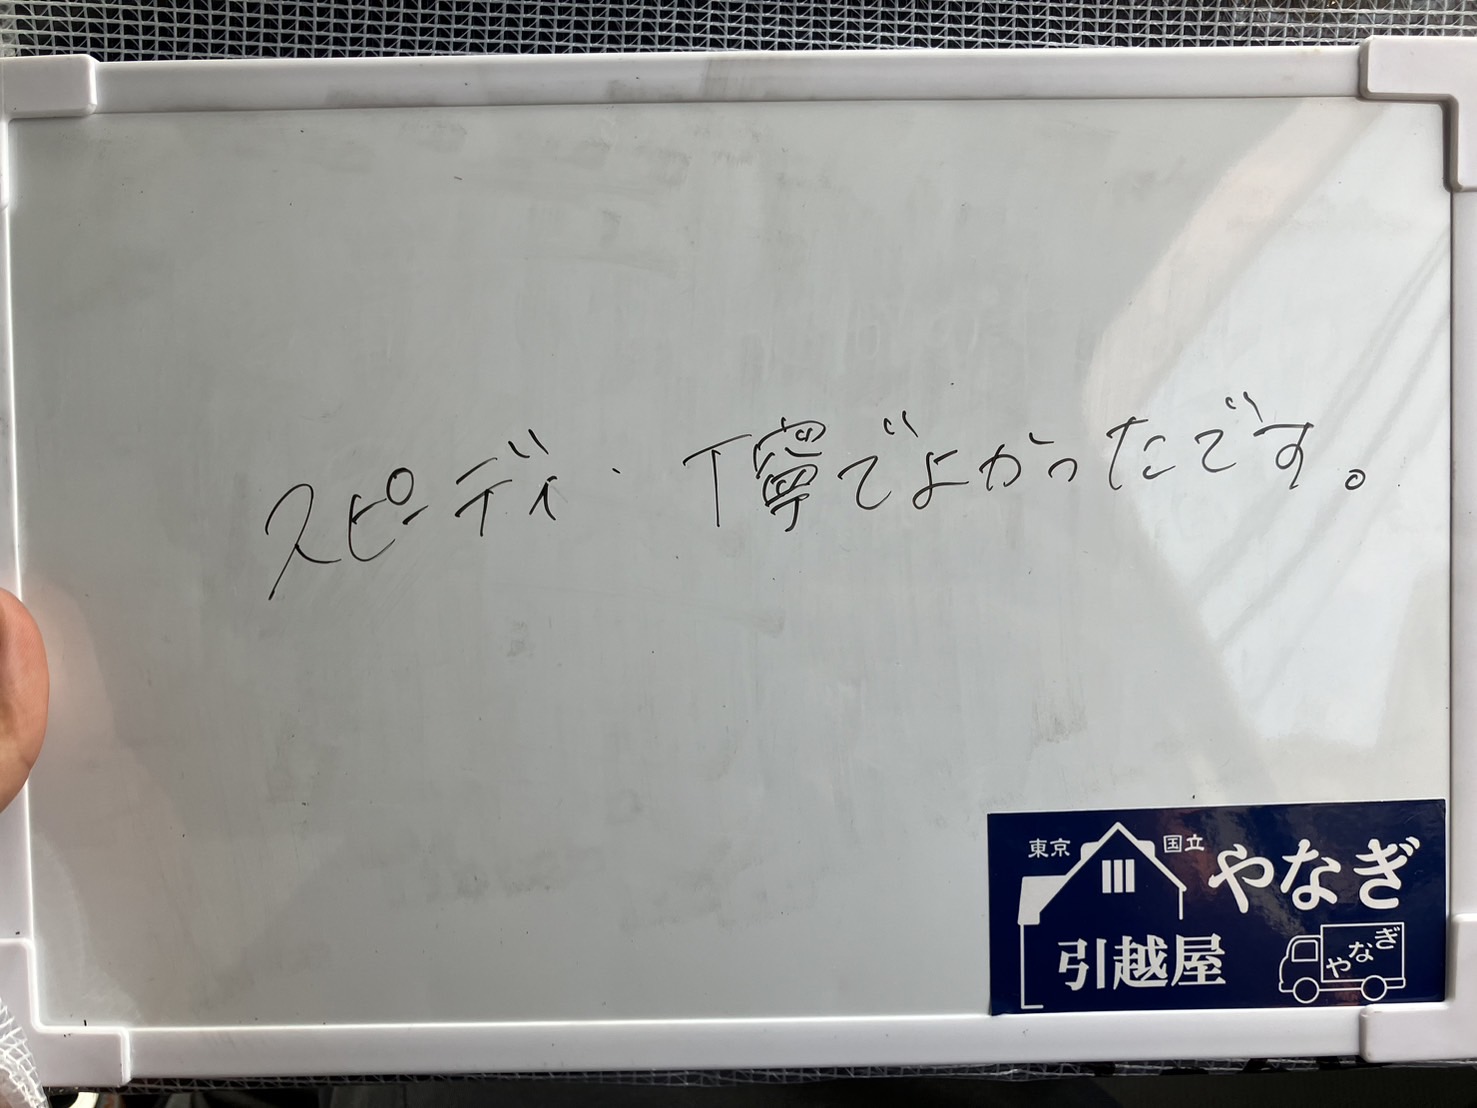 スピーディ・丁寧でよかったです。
東京 国立 やなぎ
引越屋 やなぎ